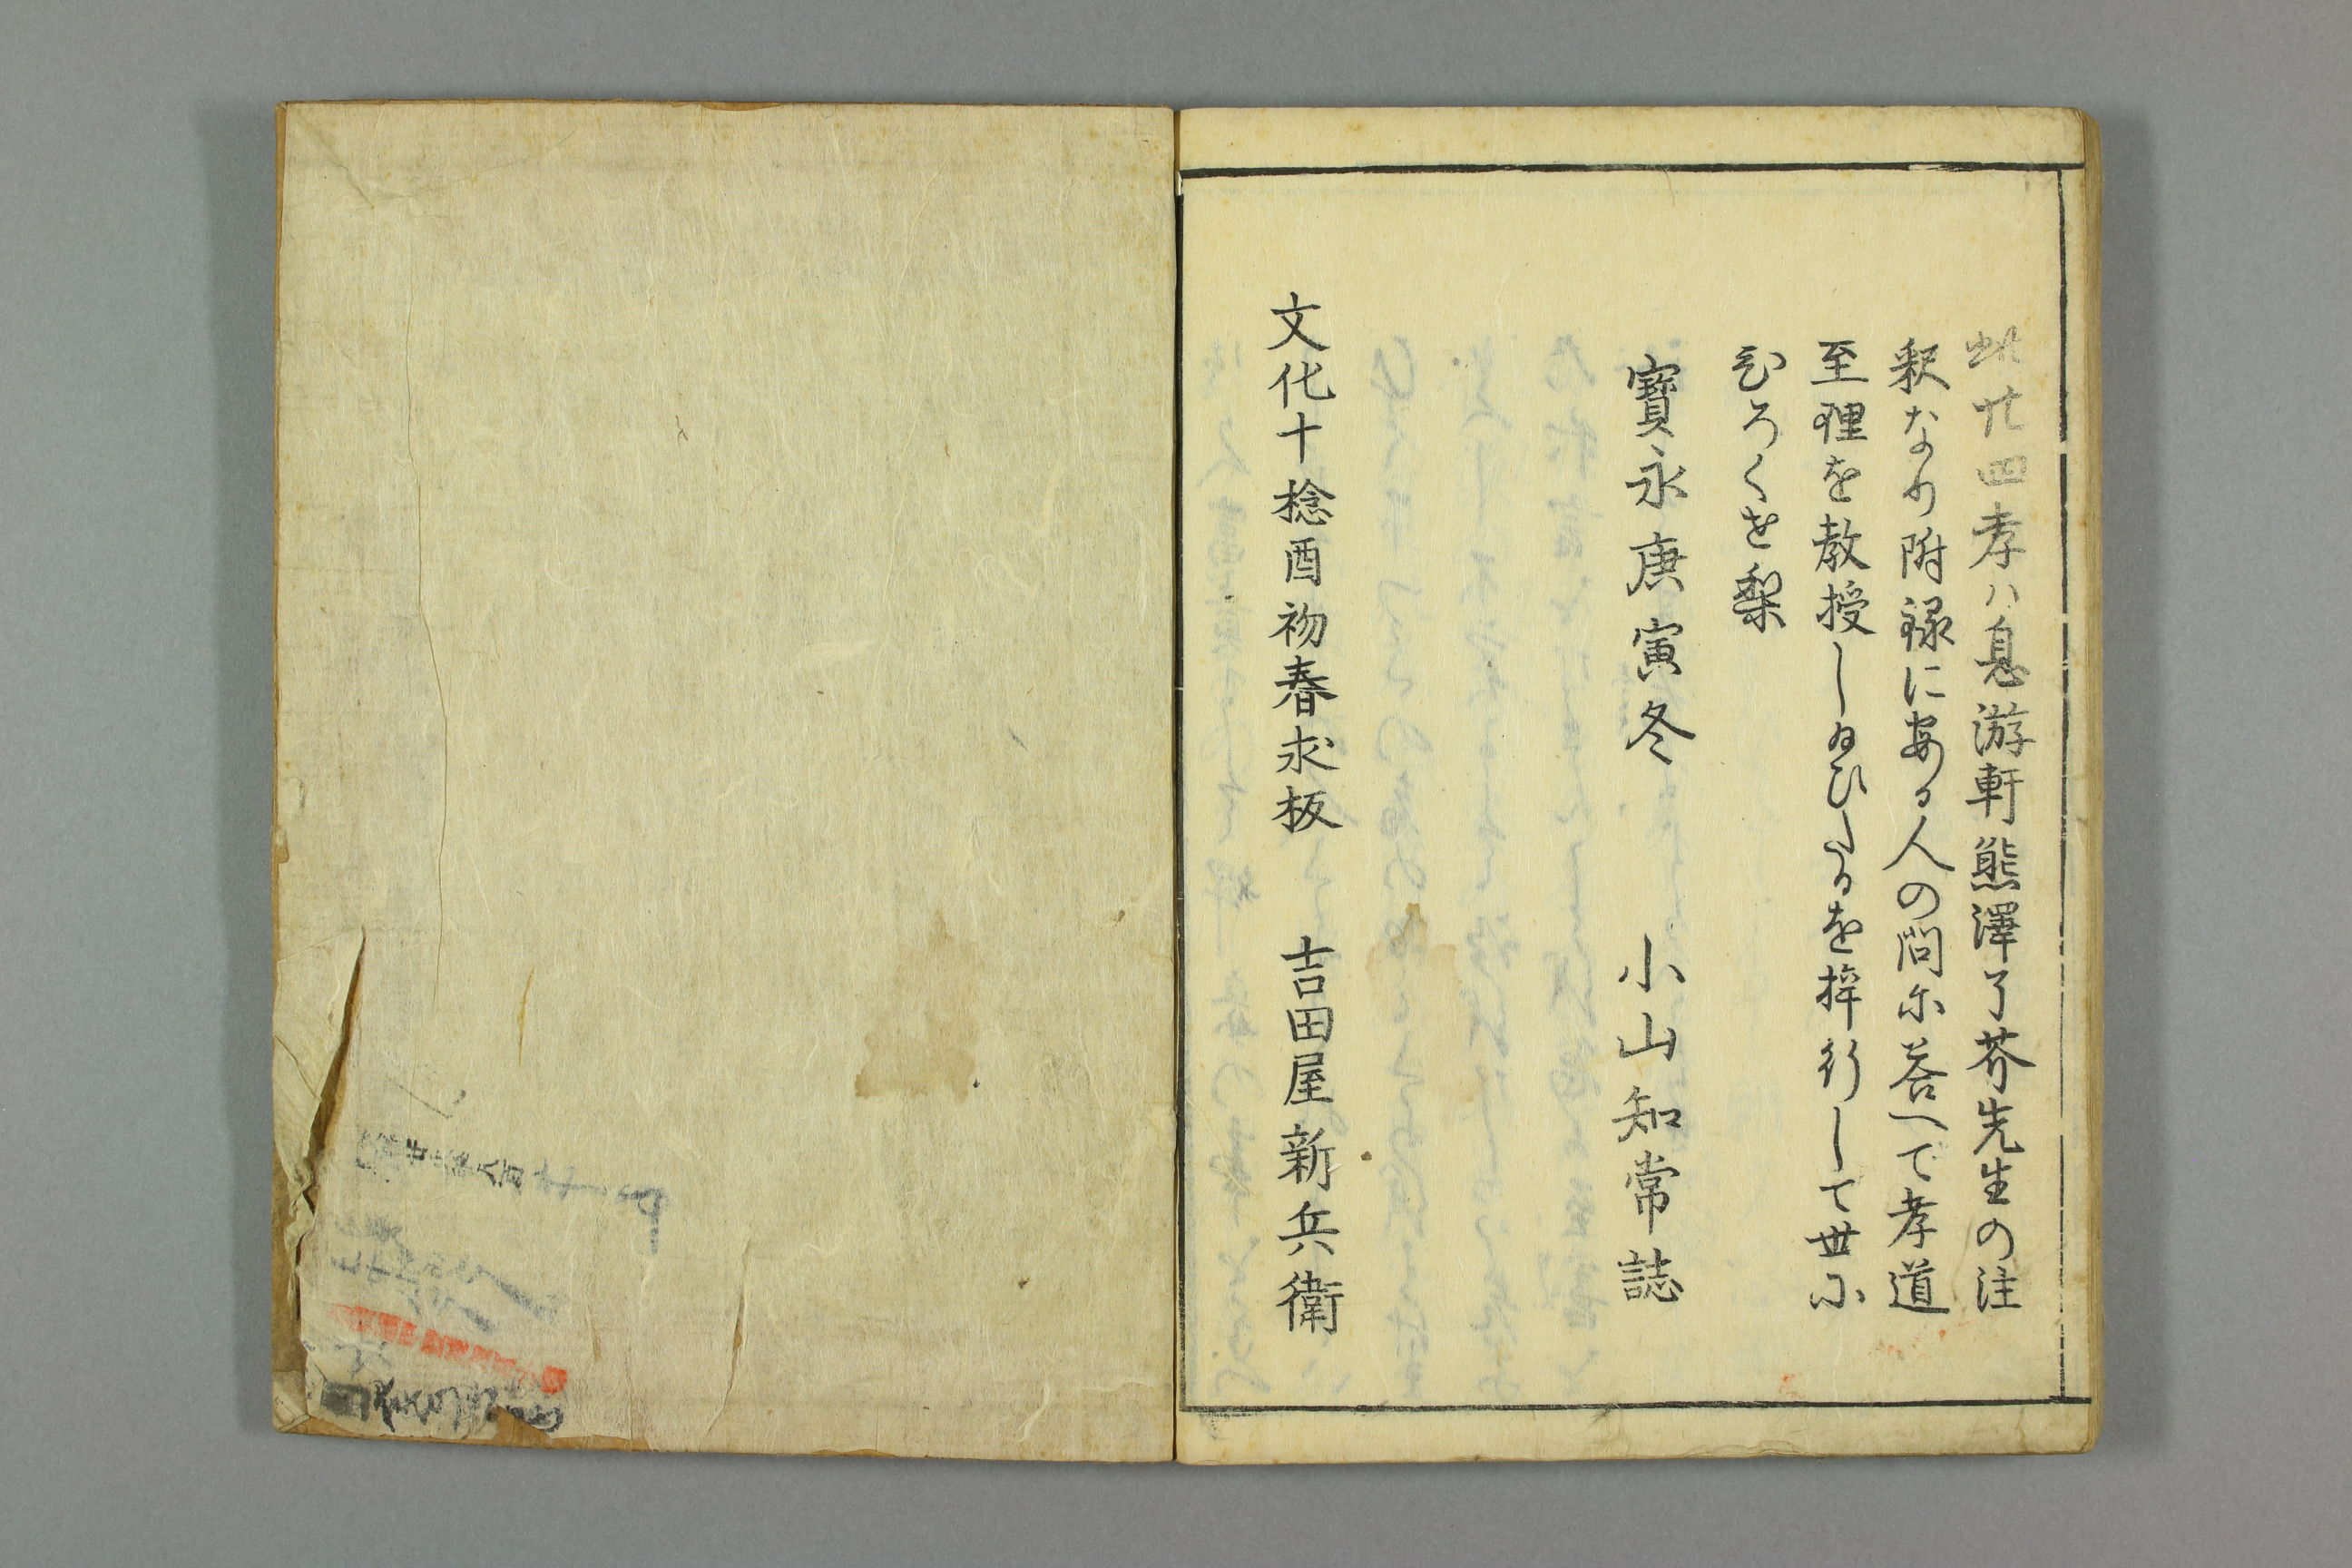 此廿四孝ハ息游軒熊澤了芥先生の注
釈なり附録に或る人の問に答へて孝道
至理を教授し給ひしを梓行して世に
ひろくせ梨
寶永庚寅冬　小山知常誌
文化十稔酉初春求板　吉田屋新兵衛